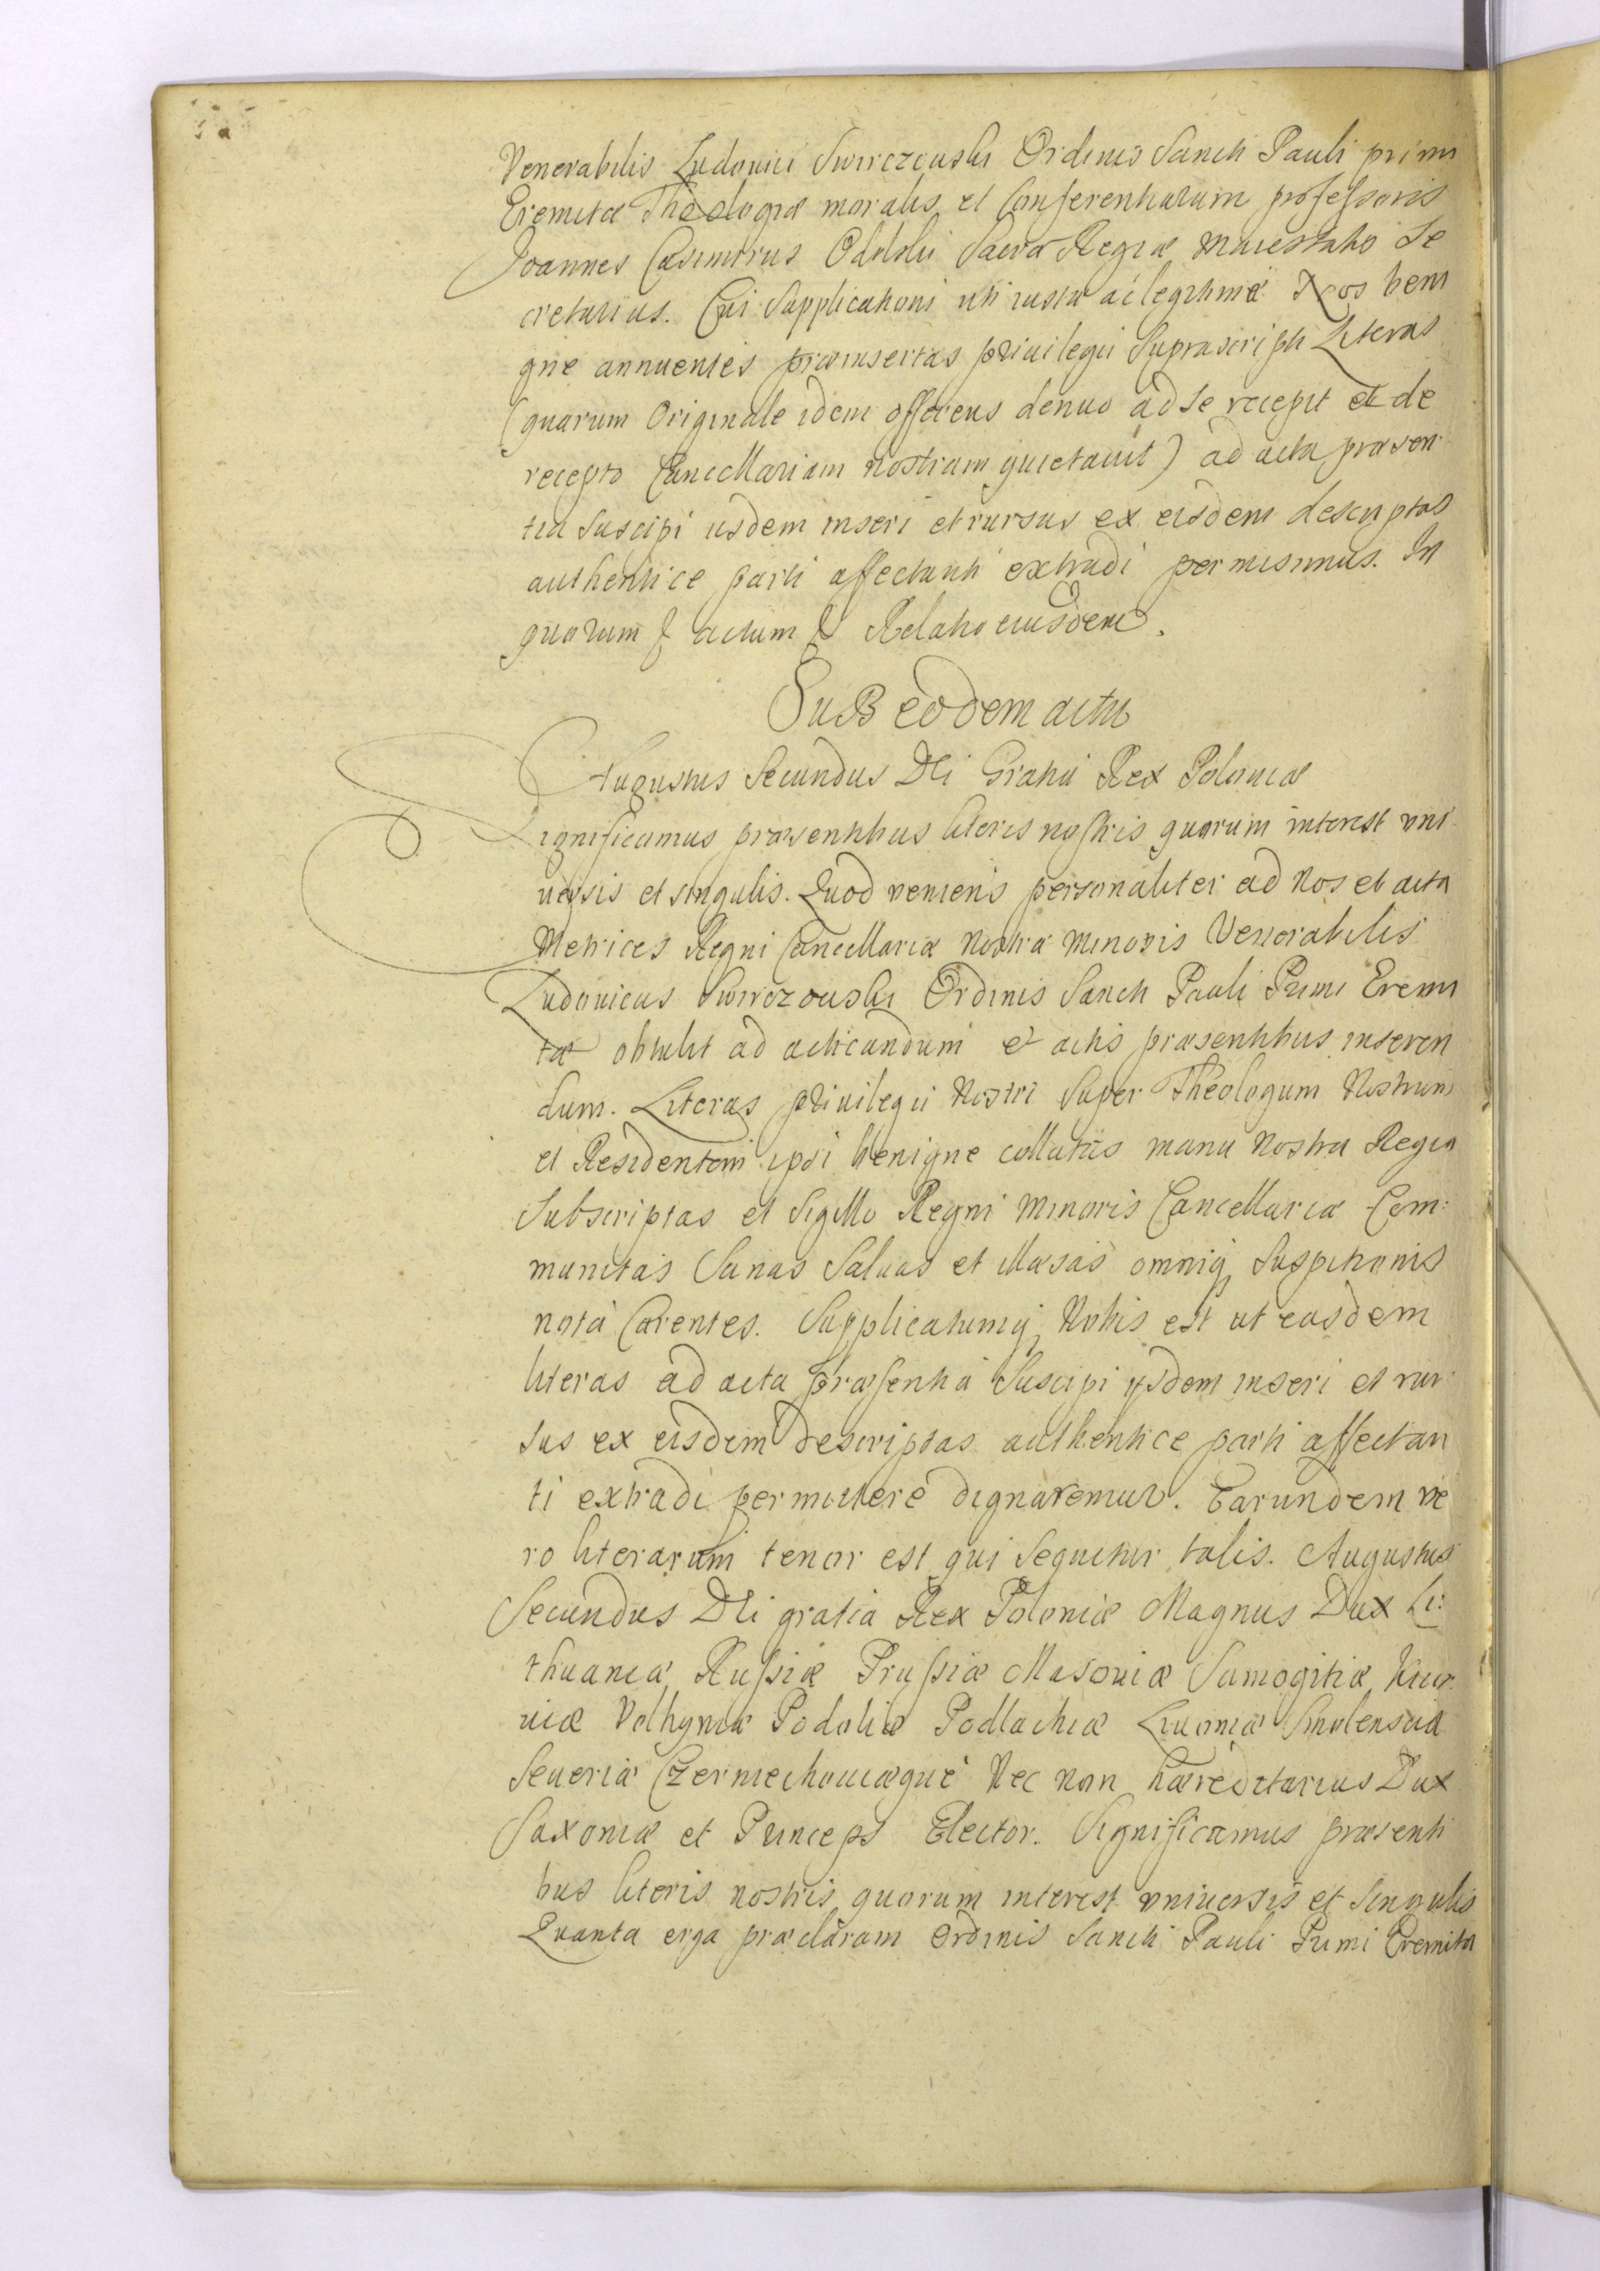 Venerabilis Ludovici Swirczewski Ordinis Sancti Pauli primi
Eremitæ Theologiæ moralis et Conferentiarum professoris
Joannes Casimirus Sacræ Regiæ Maiestatis Se
cretarius. Cui Supplicationi uti iustæ ac legitimæ Nos beni
gne annuentes præinsertas priuilegii Suprascripti Literas
(quarum Originale idem offerens denuo ad se recepit et de
recepto Cancellariam nostram quietauit) ad acta præsen
tia Suscipi iisdem inseri et rursus ex eisdem descriptas
authentice parti affectanti extradi permisimus. In
quorum & actum & Relatio eiusdem.
Sub eodem actu
Augustus Secundus Dei Gratia Rex Poloniæ
Significamus præsentibus literis nostris quorum interest uni
uersis et singulis. Quod veniens personaliter ad Nos et acta
Metrices Regni Cancellariæ Nostræ Minoris Venerabilis
Ludouicus Swirczowski Ordinis Sancti Pauli Primi Eremi
tæ obtulit ad acticandum et actis præsentibus inseren
dum. Literas priuilegii Nostri Super Theologum Nostrum
et Residentem ipsi benigne collatiis manu Nostra Regia
Subscriptas et Sigillo Regni Minoris Cancellariæ Com:
munitas Sanas Saluas et illæsas omniq, Suspitionis
nota Carentes. Supplicatumq, Nobis est ut easdem
literas ad acta præsentia Suscipi ysdem inseri et rur
sus ex eisdem descriptas authentice parti affectan
ti extradi permittere dignaremur. Earundem ve
ro literarum tenor est qui sequitur talis. Augustus
Secundus Dei gratia Rex Poloniæ Magnus Dux Li:
thuaniæ Russiæ Prussiæ Masouiæ Samogitiæ Kiio
uiæ Volhyniæ Podoliæ Podlachiæ Liuoniæ Smolensciæ
Seueriæ Czerniechouiæque Nec non hæreditarius Dux
Saxoniæ et Princeps Elector. Significamus præsenti
bus literis nostris quorum interest vniuersis et Singulis
Quanta erga præclaram Ordinis Sancti Pauli Primi Eremitæ